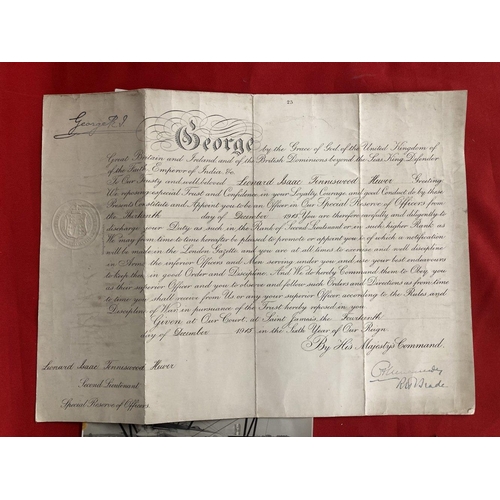 25
George R.I.
George
by the Grace of God of the United Kingdom of
Great Britain and Ireland and of the British Dominions beyond the Seas King Defender
of the Faith, Emperor of India, &c.
To Our Trusty and well beloved Leonard Isaac Tenniswood Hewer Greeting
We reposing especial Trust and Confidence in your Loyalty, Courage, and good Conduct do by these
Presents Constitute and Appoint you to be an Officer in Our Special Reserve of Officers from
the day of December 1915 You are therefore carefully and diligently to
discharge your Duty as such in the Rank of Second Lieutenant or in such higher Rank as
We may from time to time hereafter to promote or appoint you to of which a notification
will be made in the London Gazette and you are at all times to exercise and well discipline
in Arms the inferior Officers and Men serving under you and use your best endeavours
to keep them in good Order and Discipline. And We do hereby Command them to Obey you
as their superior Officer and you to observe and follow such Orders and Directions as from time
to time you shall receive from Us or any your superior Officer according to the Rules and
Discipline of War in pursuance of the Trust hereby reposed in you.
Given at Our Court, at Saint James's, the Fourteenth
day of December 1915 in the Sixth Year of Our Reign
By His Majesty's Command.
Leonard Isaac Tenniswood Hewer
Second Lieutenant
Special Reserve of Officers
R H Brade